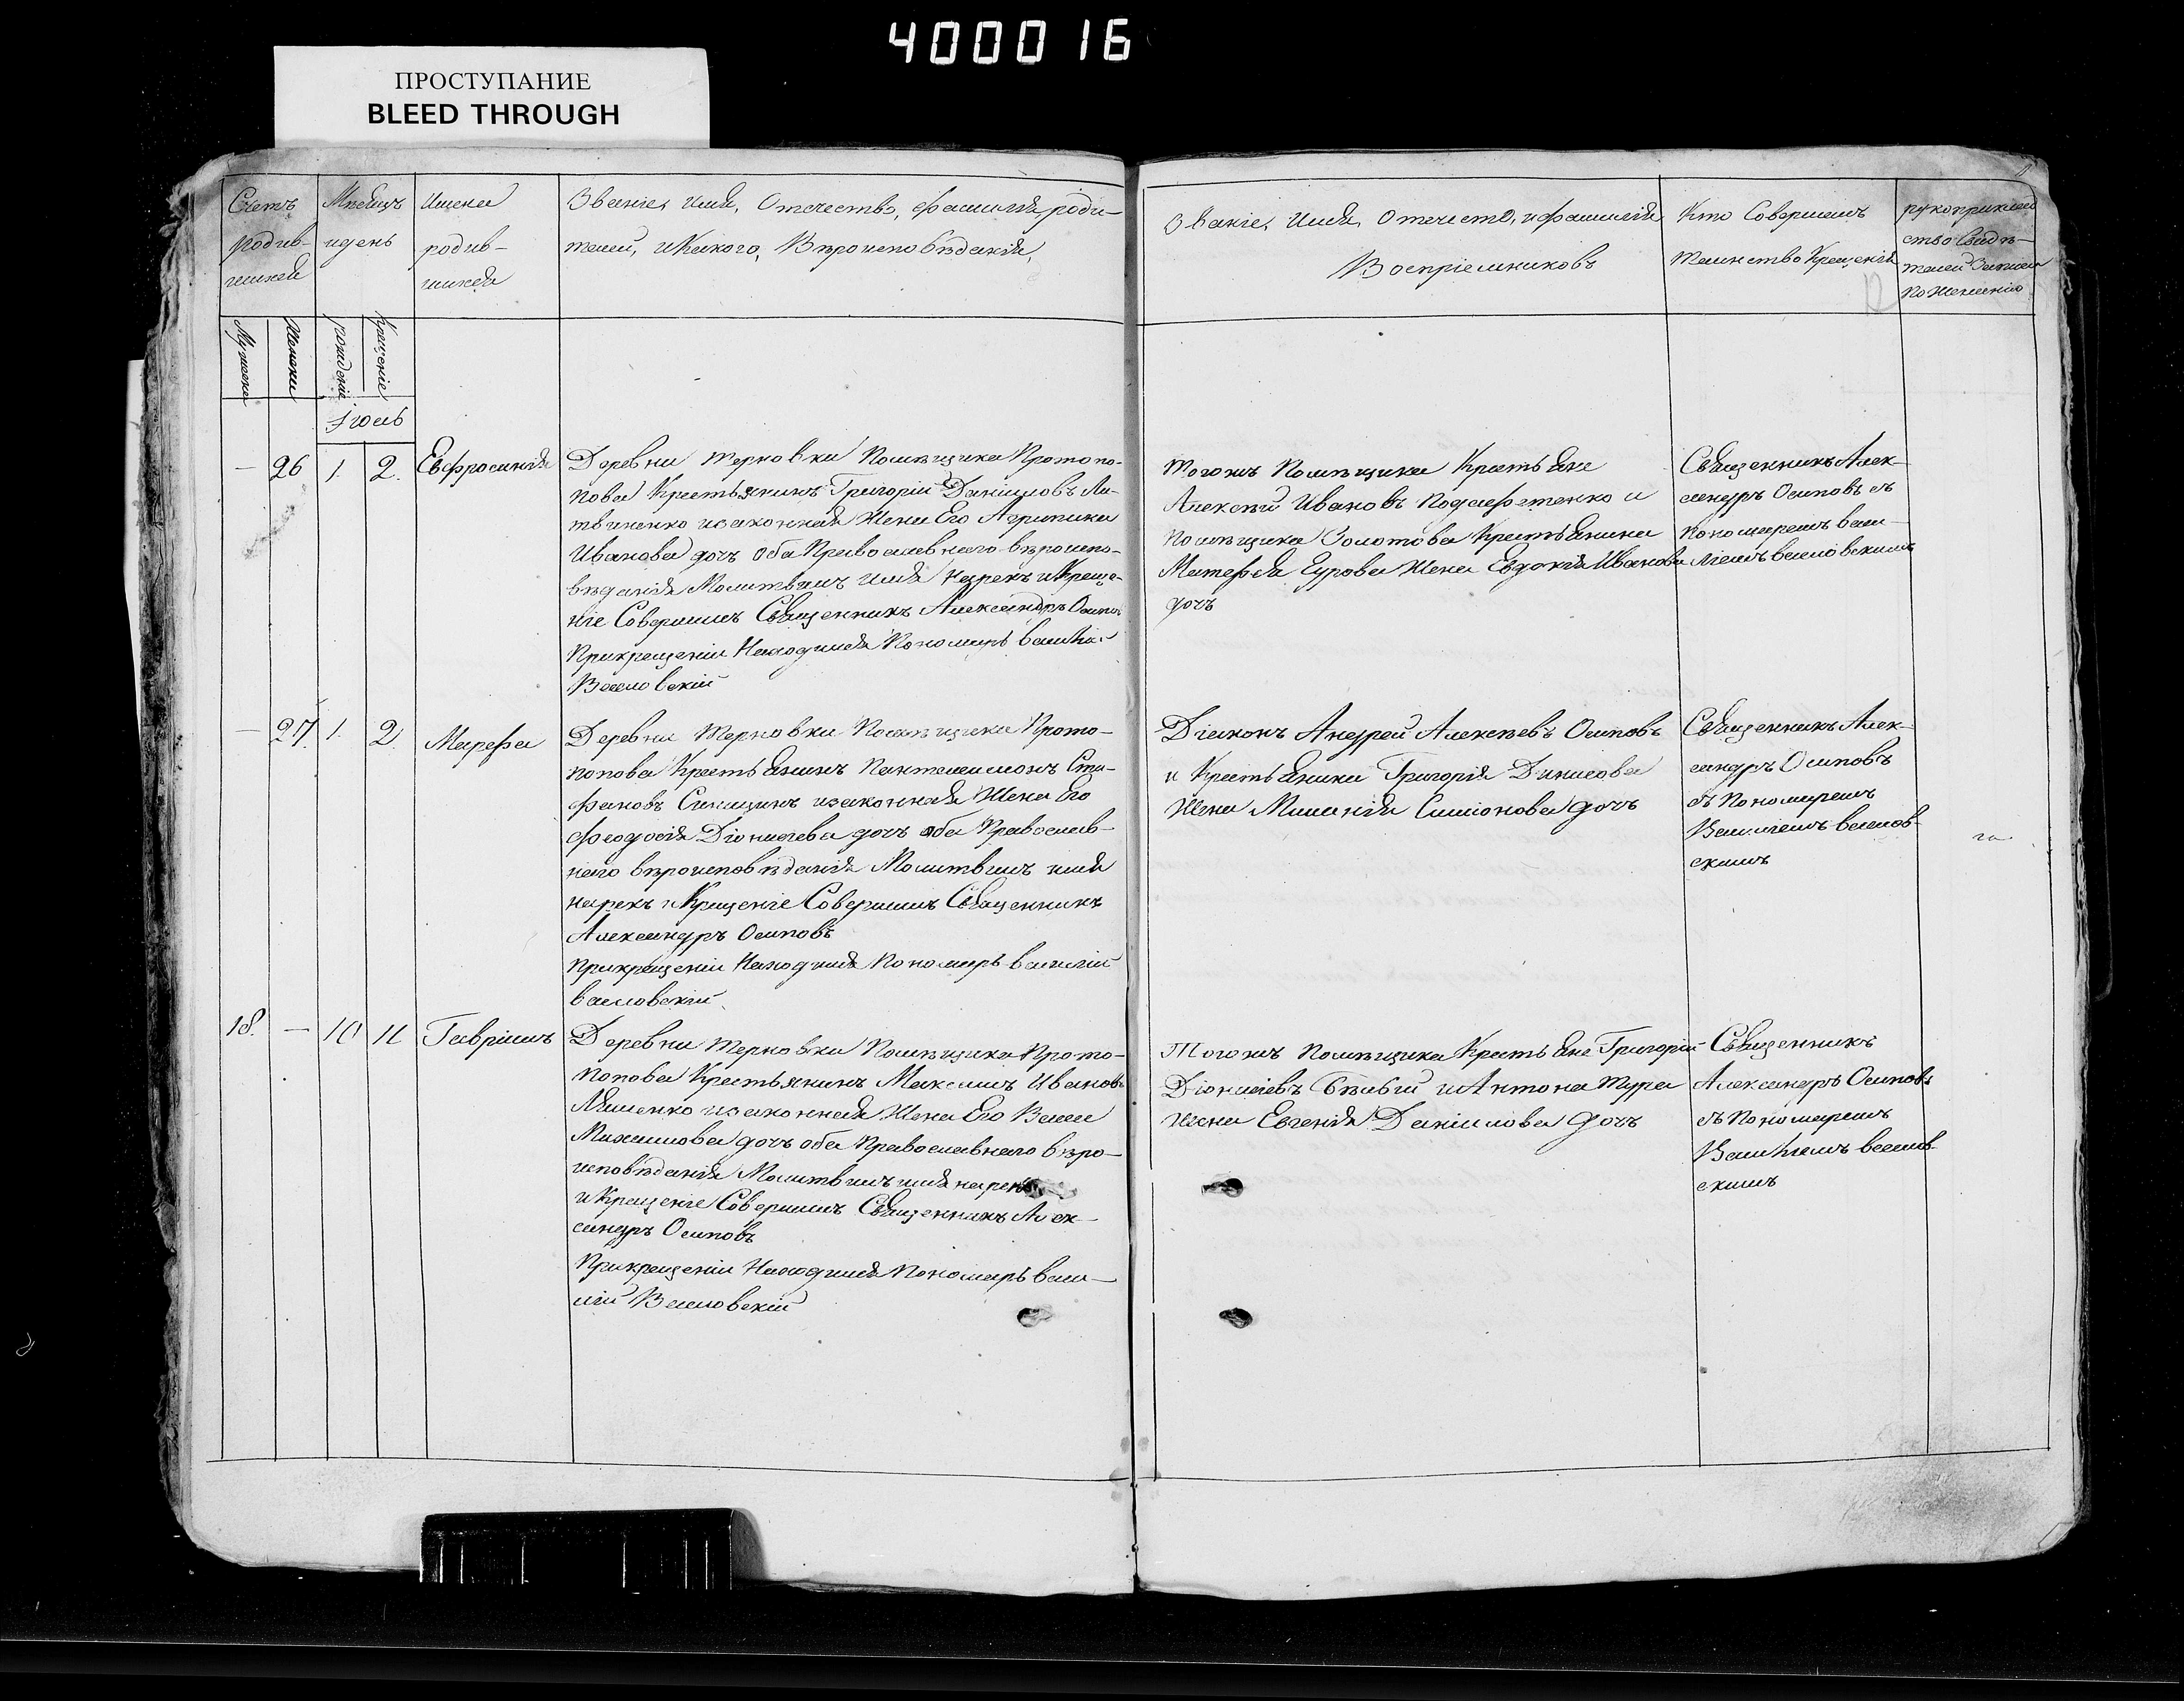 400016
ПРОСТУПАНИЕ
BLEED THROUGH
Счетъ
родив-
шихся
Мѣсяцъ
и день
Имена
родив-
шихся
Званіе, Имя, Отечество, Фамилія роди-
телей, и Какого, Вѣроисповѣданія,
Званіе, Имя, Отечество, и фамилія
Воспріемниковъ
Кто Совершалъ
Таинство Крещенія
рукоприклад
ство Свидѣ-
телей Записи
По Желанію
Мужеска
Женска
рожденіе
Крещеніе
Іюль
— 26 1. 2. Евфросинія
Деревни Терновки Помѣщика Протопо-
пова Крестьянинъ Григорій Даниловъ Ли-
твиненко изаконная Жена Его Агрипина
Иванова дочь оба Православнаго вѣроиспо-
вѣданія Молитвилъ имя нарекъ и Креще-
ніе Совершилъ Священникъ Александръ Осипов
Прикрещеніи Находился Пономарь
Веселовскій
Тогожъ Помѣщика Крестьяне
Алексѣй Ивановъ и
Помѣщика Золотова Крестьянина
Матефея Еурова Жена Евдокія Иванова
дочь
Священникъ Алек-
сандръ Осиповъ съ
Пономаремъ Васи-
ліемъ веселовскимъ
— 27. 1. 2. Марефа
Деревни Терновки Помѣщика Прото-
попова Крестьянинъ Пантелеимонъ Сте-
фановъ изаконная Жена Его
Феодосія Діонисіева дочь оба Православ-
наго вѣроисповѣданія Молитвилъ имя
нарекъ и Крещеніе Совершилъ Священникъ
Александръ Осиповъ
Прикрещеніи Находился Пономарь василій
веселовскій
Діаконъ Андрей Алексѣевъ Осиповъ
и Крестьянина Григорія Денисова
Жена Меланія Симіонова дочь
Священникъ Алек-
сандръ Осиповъ
съ Пономаремъ
Василіемъ веселов-
скимъ
18. — 10 11 Гавріилъ
Деревни Терновки Помѣщика Прото-
попова Крестьянинъ Максимъ Ивановъ
Ляшенко изаконная Жена Его Васса
Михаилова дочь оба Православнаго вѣро-
исповѣданія Молитвилъ имя нарекъ
и Крещеніе Совершилъ Священникъ Алек-
сандръ Осиповъ
Прикрещеніи Находился Пономарь васи-
лій Веселовскій
Тогожъ Помѣщика Крестьяне Григорій
Діонисіевъ и Антона Тура
Жена Евгенія Данилова дочь
Священникъ
Александръ Осиповъ
съ Пономаремъ
Василіемъ веселов-
скимъ